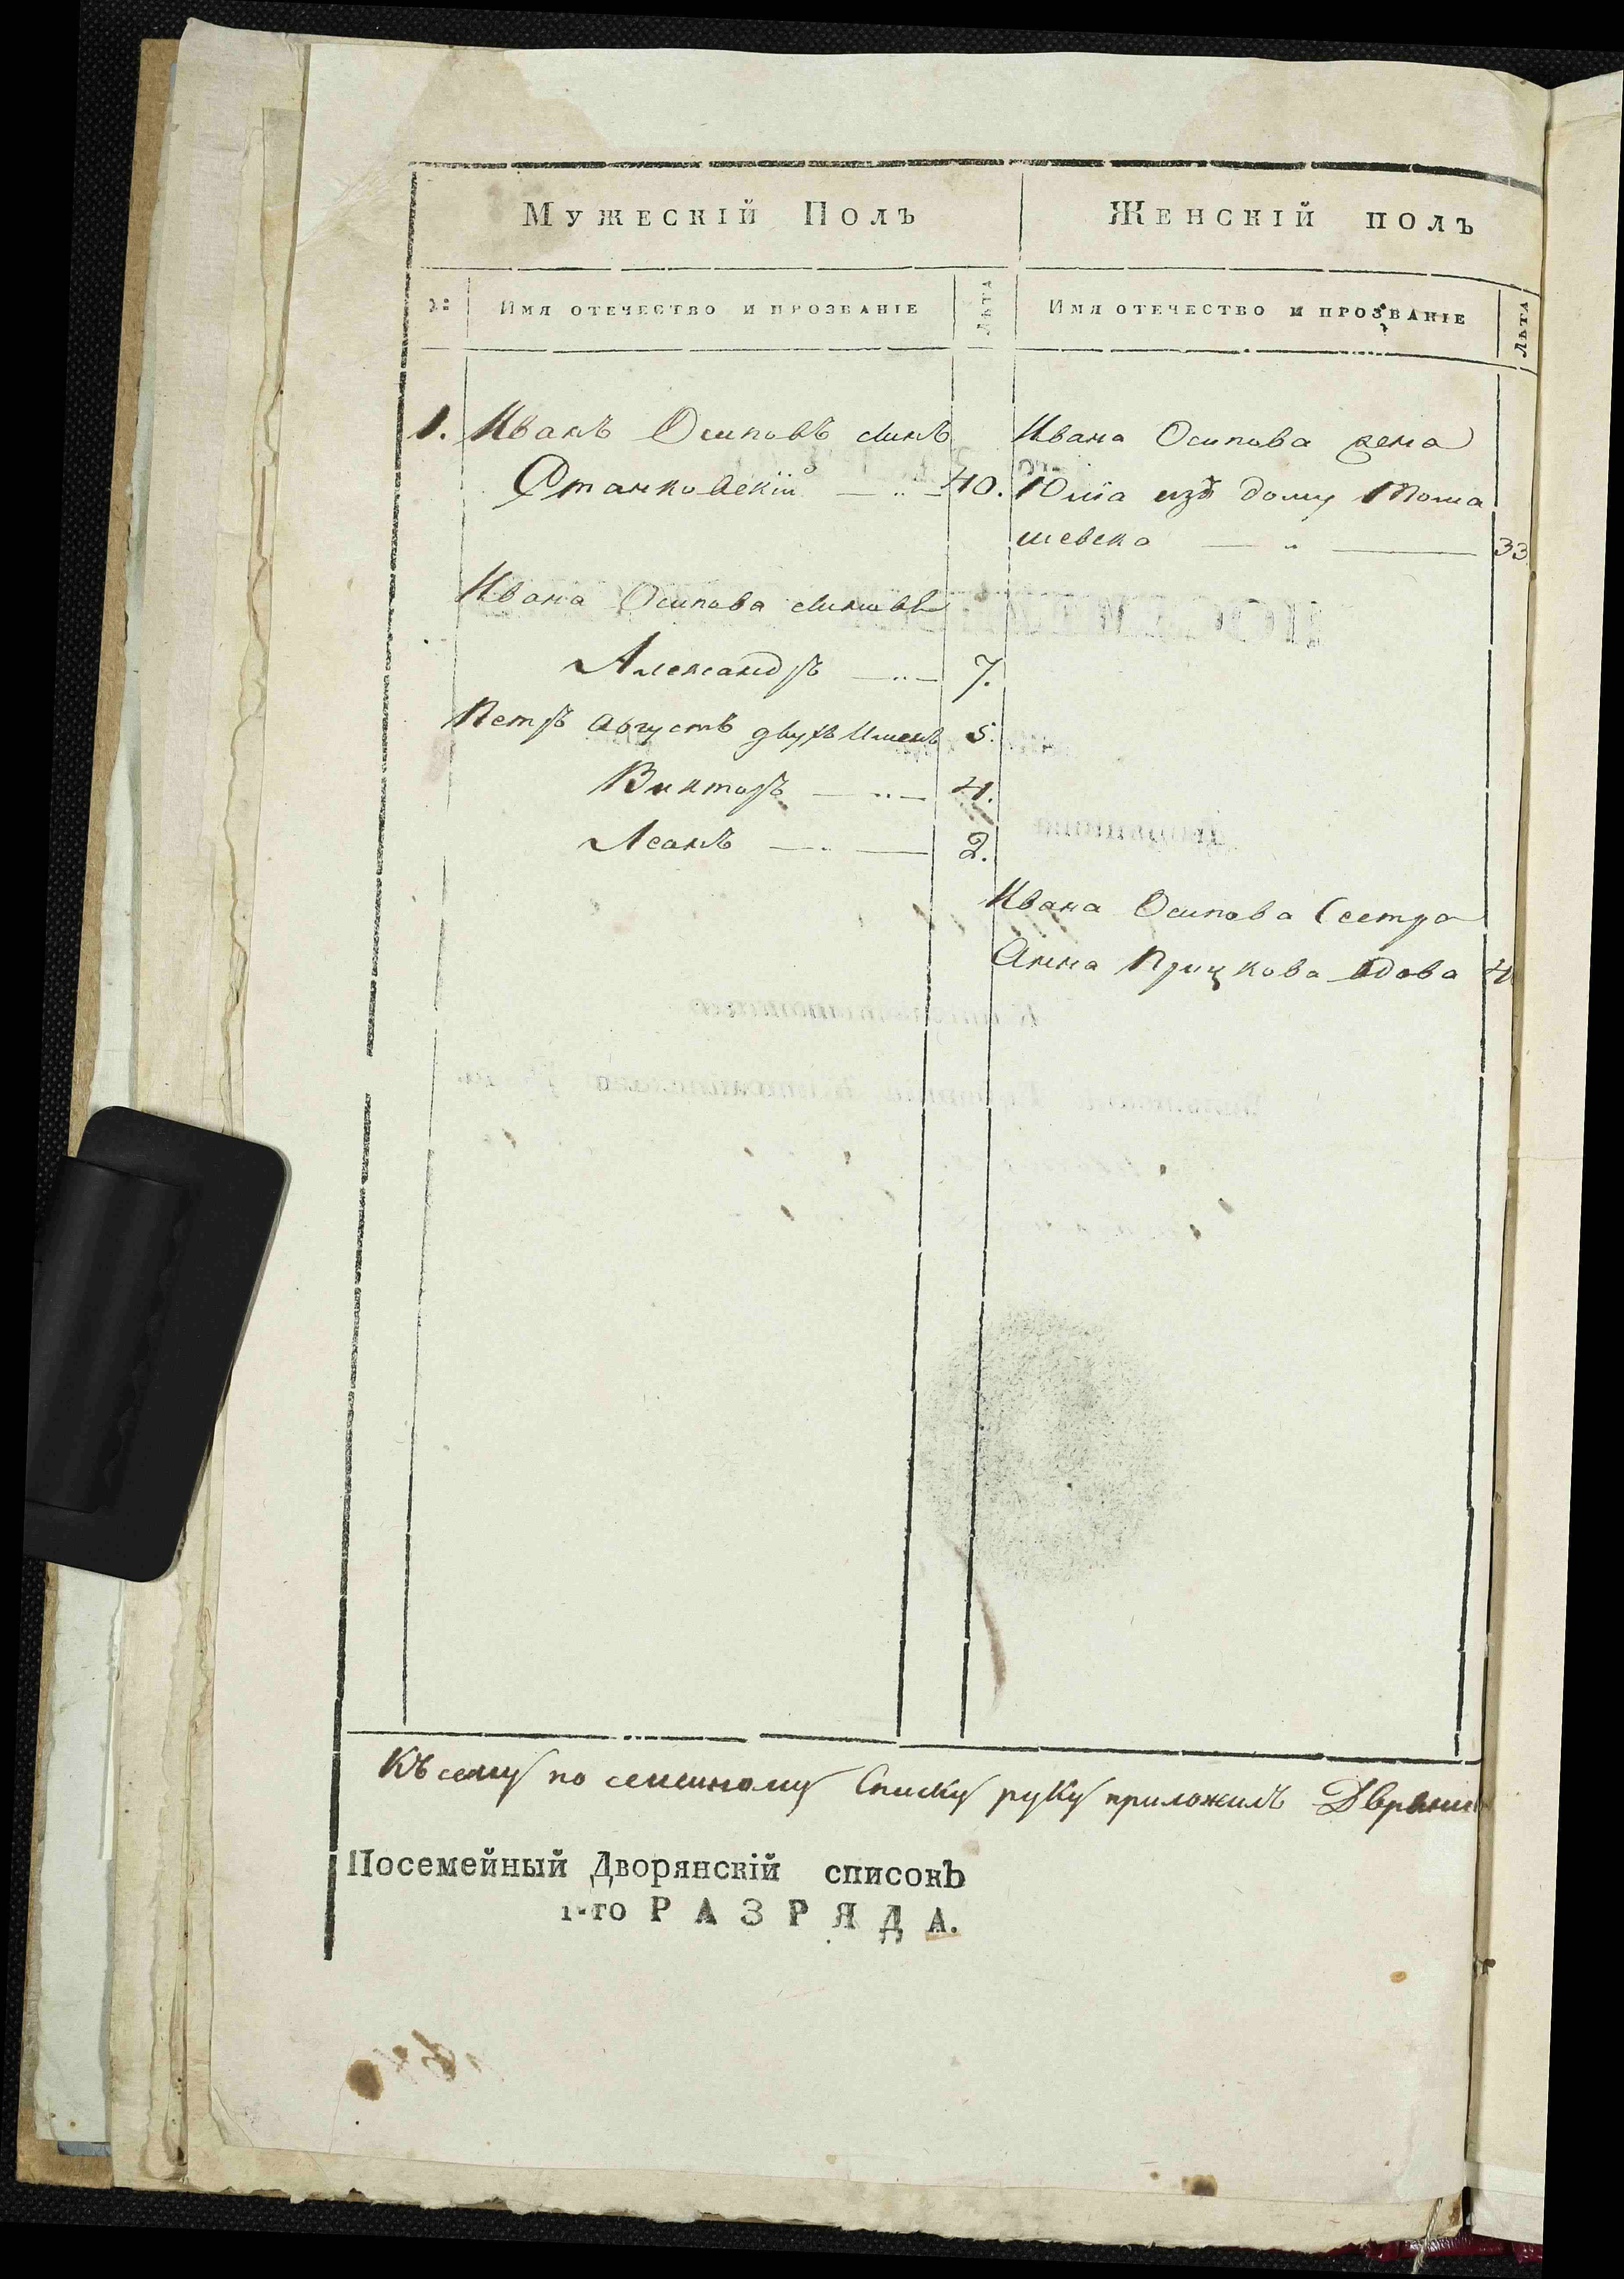 Мужескій Полъ
Женскій полъ
№
Имя отечество и прозваніе
Лѣта
Имя отечество и прозваніе
Лѣта
1. Иванъ Осиповъ сынъ
Станковскій 40.
Ивана Осипова жена
Юлія изъ дому Тома
шевска 33
Ивана Осипова сыновья
Александръ 7.
Петръ Августъ двухъ Именъ 5.
Викторъ 4.
Іванъ 2.
Ивана Осипова Сестра
Анна вдова 4
Къ сему по семеиному Списку руку приложилъ
Посемейный Дворянскій списокъ
1-го РАЗРЯДА.